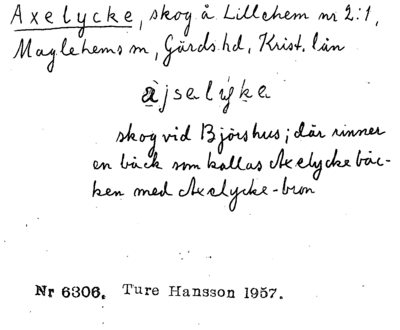 Axelycke, skog å Lillehem nr 2:1,
Maglehems sn, Gärds hd, Krist. län
skog vid Björshus; där rinner
en bäck som kallas Axelyckebäc-
ken med Axelycke-bron
Nr 6306. Ture Hansson 1957.